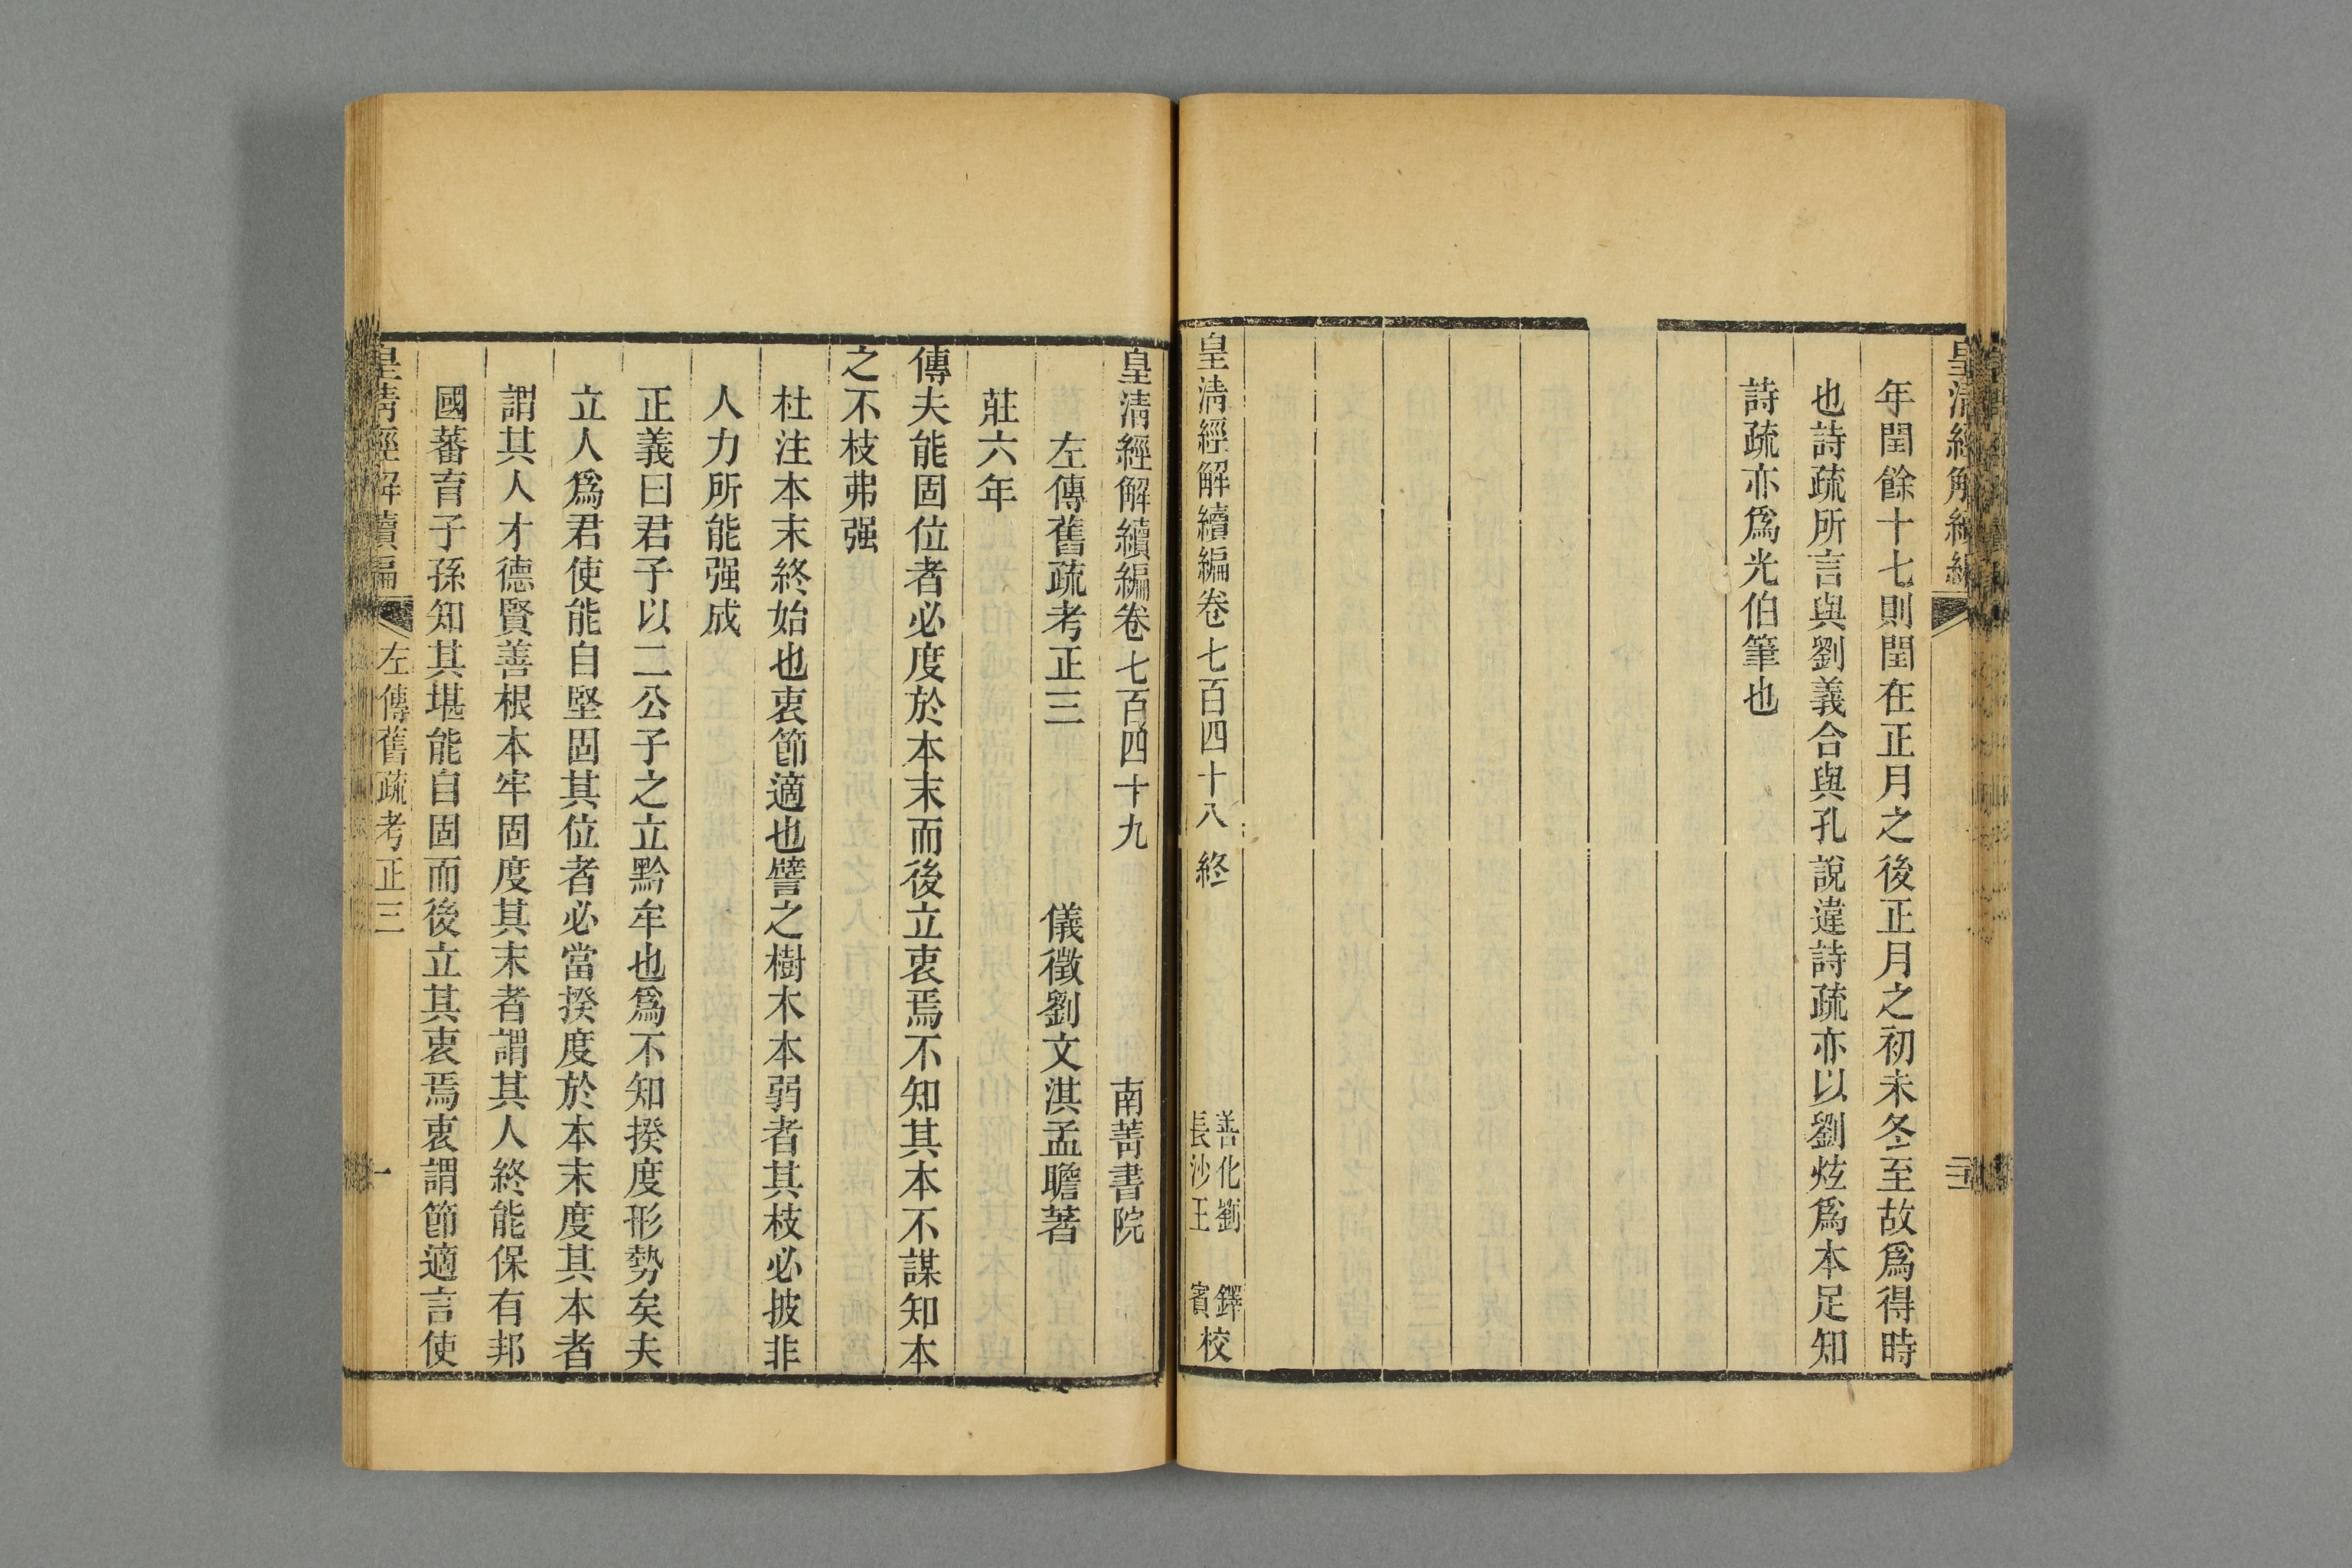 皇清經解續編
年閏餘十七則閏在正月之後正月之初未冬至故爲得時
也詩疏所言與劉義合與孔說違詩疏亦以劉炫爲本足知
詩疏亦爲光伯筆也
皇清經解續編卷七百四十八終
善化劉鐸
長沙王賓
校
皇清經解續編卷七百四十九 南菁書院
左傳舊疏考正三 儀徵劉文淇孟瞻著
莊六年
傳夫能固位者必度於本末而後立衷焉不知其本不謀知本
之不枝弗强
杜注本末終始也衷節適也譬之樹木本弱者其枝必披非
人力所能强成
正義曰君子以二公子之立黔牟也爲不知揆度形勢矣夫
立人爲君使能自堅固其位者必當揆度於本末度其本者
謂其人才德賢善根本牢固度其末者謂其人終能保有邦
國蕃育子孫知其堪能自固而後立其衷焉衷謂節適言使
皇清經解續編 左傳舊疏考正三 一